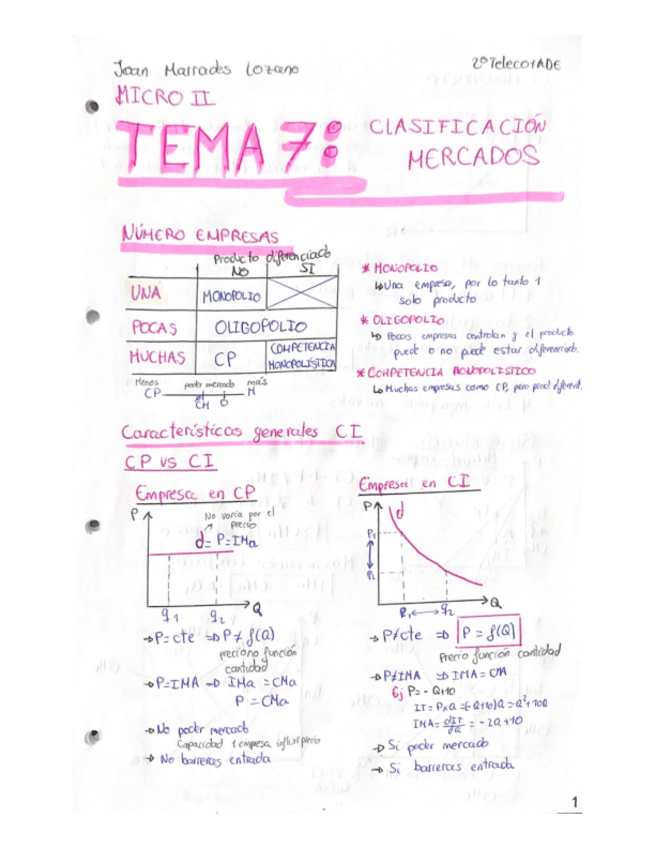 Joan Marrades Lozano
2º Teleco+ADE
MICRO II
TEMA 7:
CLASIFICACIÓN
MERCADOS
NÚMERO EMPRESAS
Producto diferenciado
NO
SI
UNA
MONOPOLIO
POCAS
OLIGOPOLIO
MUCHAS
CP
COMPETENCIA
MONOPOLÍSTICA
Menos poder mercado más
CP
CM
O
M
* MONOPOLIO
↳ Una empresa, por lo tanto 1
solo producto
* OLIGOPOLIO
↳ Pocas empresas controlan y el producto
puede o no puede estar diferenciado.
* COMPETENCIA MONOPOLÍSTICO
↳ Muchas empresas como CP, pero prod diferent.
Características generales CI
CP vs CI
Empresa en CP
P
No varía por el
precio
d = P=IMa
q1
q2
Q
→ P=cte ⇒ P ≠ f(Q)
precio no función
cantidad
→ P=IMA ⇒ IMa = CMa
P = CMa
→ No poder mercado
Capacidad 1 empresa influir precio
→ No barreras entrada
Empresa en CI
P
d
Q
→ P≠cte ⇒ P = f(Q)
Precio función cantidad
→ P≠IMA ⇒ IMA = CMA
Ej P= -Q+10
IT= P×Q =(-Q+10)Q = -Q²+10Q
IMA= ∂IT/∂Q = -2Q+10
→ Si poder mercado
→ Si barreras entrada
1